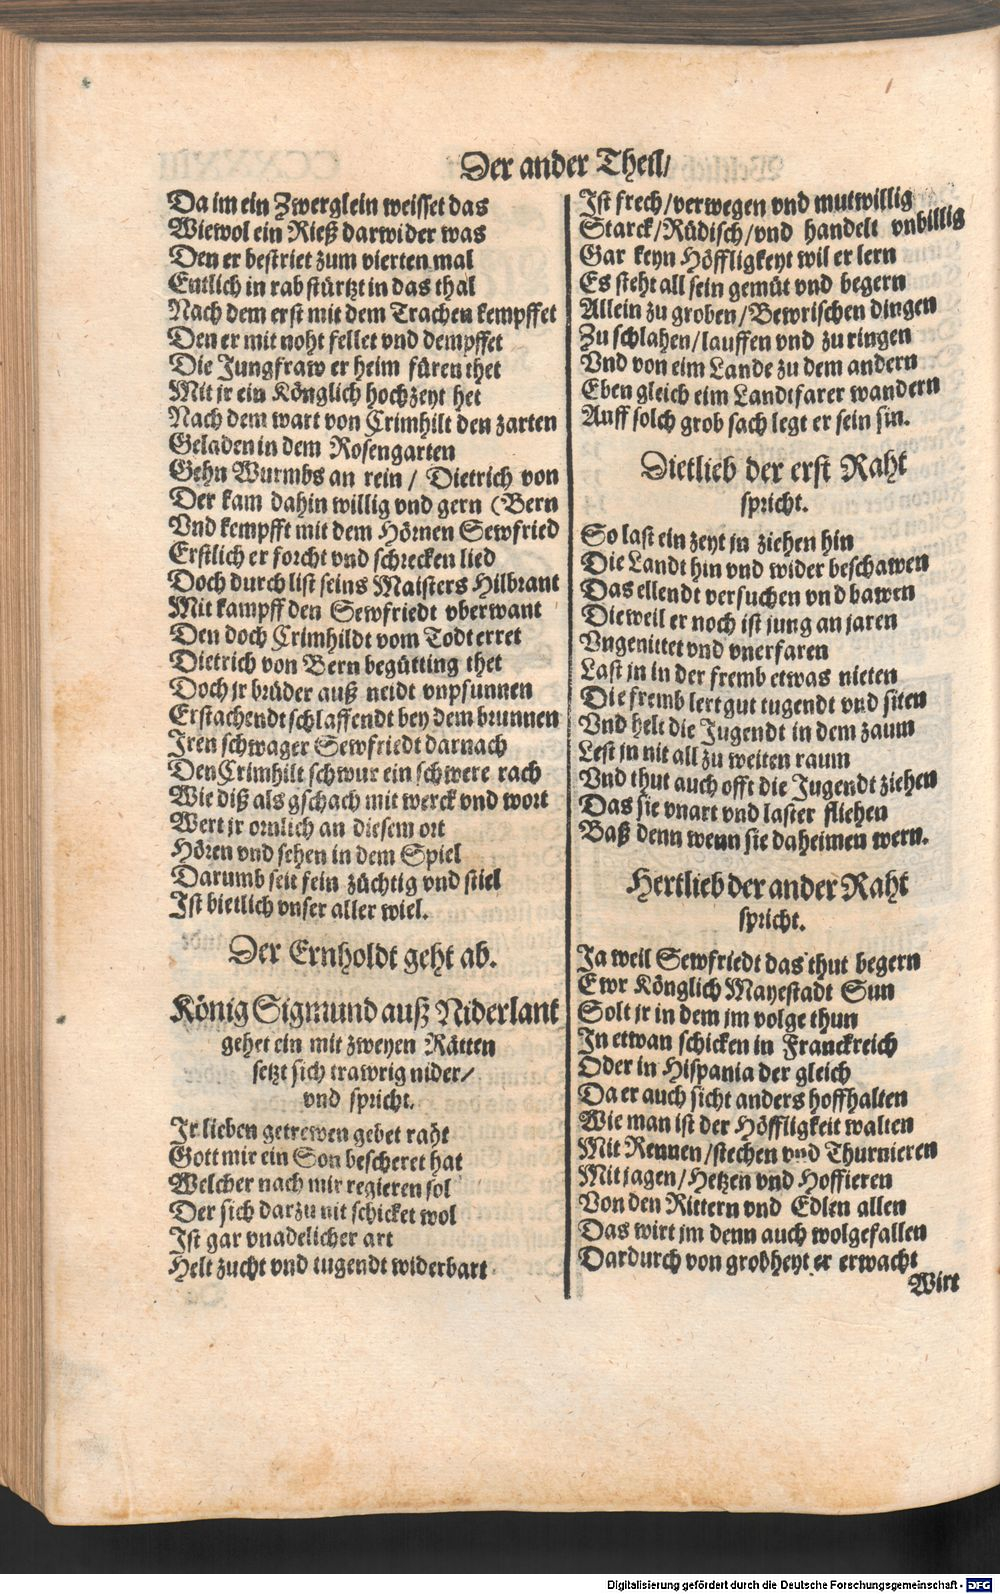 Der ander Theil/
Da im ein Zwerglein weisset das
Wiewol ein Rieß darwider was
Den er bestriet zum vierten mal
Entlich in rab stürtzt in das thal
Nach dem erst mit dem Trachen kempffet
Den er mit noht fellet vnd dempffet
Die Jungfraw er heim füren thet
Mit jr ein Könglich hochzeyt het
Nach dem wart von Crimhilt den zarten
Geladen in dem Rosengarten
Gehn Wurmbs an rein / Dietrich von
Der kam dahin willig vnd gern (Bern
Vnd kempfft mit dem Hörnen Sewfried
Erstlich er forcht vnd schrecken lied
Doch durch list seins Maisters Hilbrant
Mit kampff den Sewfriedt vberwant
Den doch Crimhildt vom Todt erret
Dietrich von Bern begütting thet
Doch jr brüder auß neidt vnpsunnen
Erstachendt schlaffendt bey dem brunnen
Jren schwager Sewfriedt darnach
Den Crimhilt schwur ein schwere rach
Wie diß als gschach mit werck vnd wort
Wert jr ornlich an diesem ort
Hören vnd sehen in dem Spiel
Darumb seit fein züchtig vnd stiel
Ist bietlich vnser aller wiel.
Der Ernholdt geht ab.
König Sigmund auß Niderlant
gehet ein mit zweyen Rätten
setzt sich trawrig nider/
vnd spricht.
Jr lieben getrewen gebet raht
Gott mir ein Son bescheret hat
Welcher nach mir regieren sol
Der sich darzu nit schicket wol
Ist gar vnadelicher art
Helt zucht vnd tugendt widerbart
Ist frech/verwegen vnd mutwillig
Starck/Rüdisch/vnd handelt vnbillig
Gar keyn Höffligkeyt wil er lern
Es steht all sein gemüt vnd begern
Allein zu groben/Bewrischen dingen
Zu schlahen/lauffen vnd zu ringen
Vnd von eim Lande zu dem andern
Eben gleich eim Landtfarer wandern
Auff solch grob sach legt er sein sin.
Dietlieb der erst Raht
spricht.
So last ein zeyt jn ziehen hin
Die Landt hin vnd wider beschawen
Das ellendt versuchen vnd bawen
Dieweil er noch ist jung an jaren
Vngenittet vnd vnerfaren
Last jn in der fremb etwas nieten
Die fremb lert gut tugendt vnd siten
Vnd helt die Jugendt in dem zaum
Lest jn nit all zu weiten raum
Vnd thut auch offt die Jugendt ziehen
Das sie vnart vnd laster fliehen
Baß denn wenn sie daheimen wern.
Hertlieb der ander Raht
spricht.
Ja weil Sewfriedt das thut begern
Ewr Könglich Mayestadt Sun
Solt jr in dem jm volge thun
Jn etwan schicken in Franckreich
Oder in Hispania der gleich
Da er auch sicht anders hoffhalten
Wie man ist der Höffligkeit walten
Mit Rennen/stechen vnd Thurnieren
Mit jagen/Hetzen vnd Hoffieren
Von den Rittern vnd Edlen allen
Das wirt jm denn auch wolgefallen
Dardurch von grobheyt er erwacht
Wirt
Digitalisierung gefördert durch die Deutsche Forschungsgemeinschaft - DFG